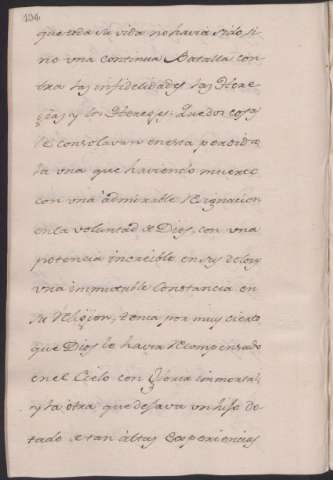 104
que toda su vida no havia sido si
no una continua Batalla con
tra las infidelidades las Here
gias y los Hereges; que dos cosas
le consolavan en esta perdida
la una que haviendo muerto
con una admirable resignacion
en la voluntad de Dios, con una
potencia increible en sus dolores
una immutable Constancia en
su Religion, tenia por muy cierto
que Dios le havia recompensado
en el Cielo con Gloria immortal,
y la otra que dejava un hijo do
tado de tan altas Experiencias